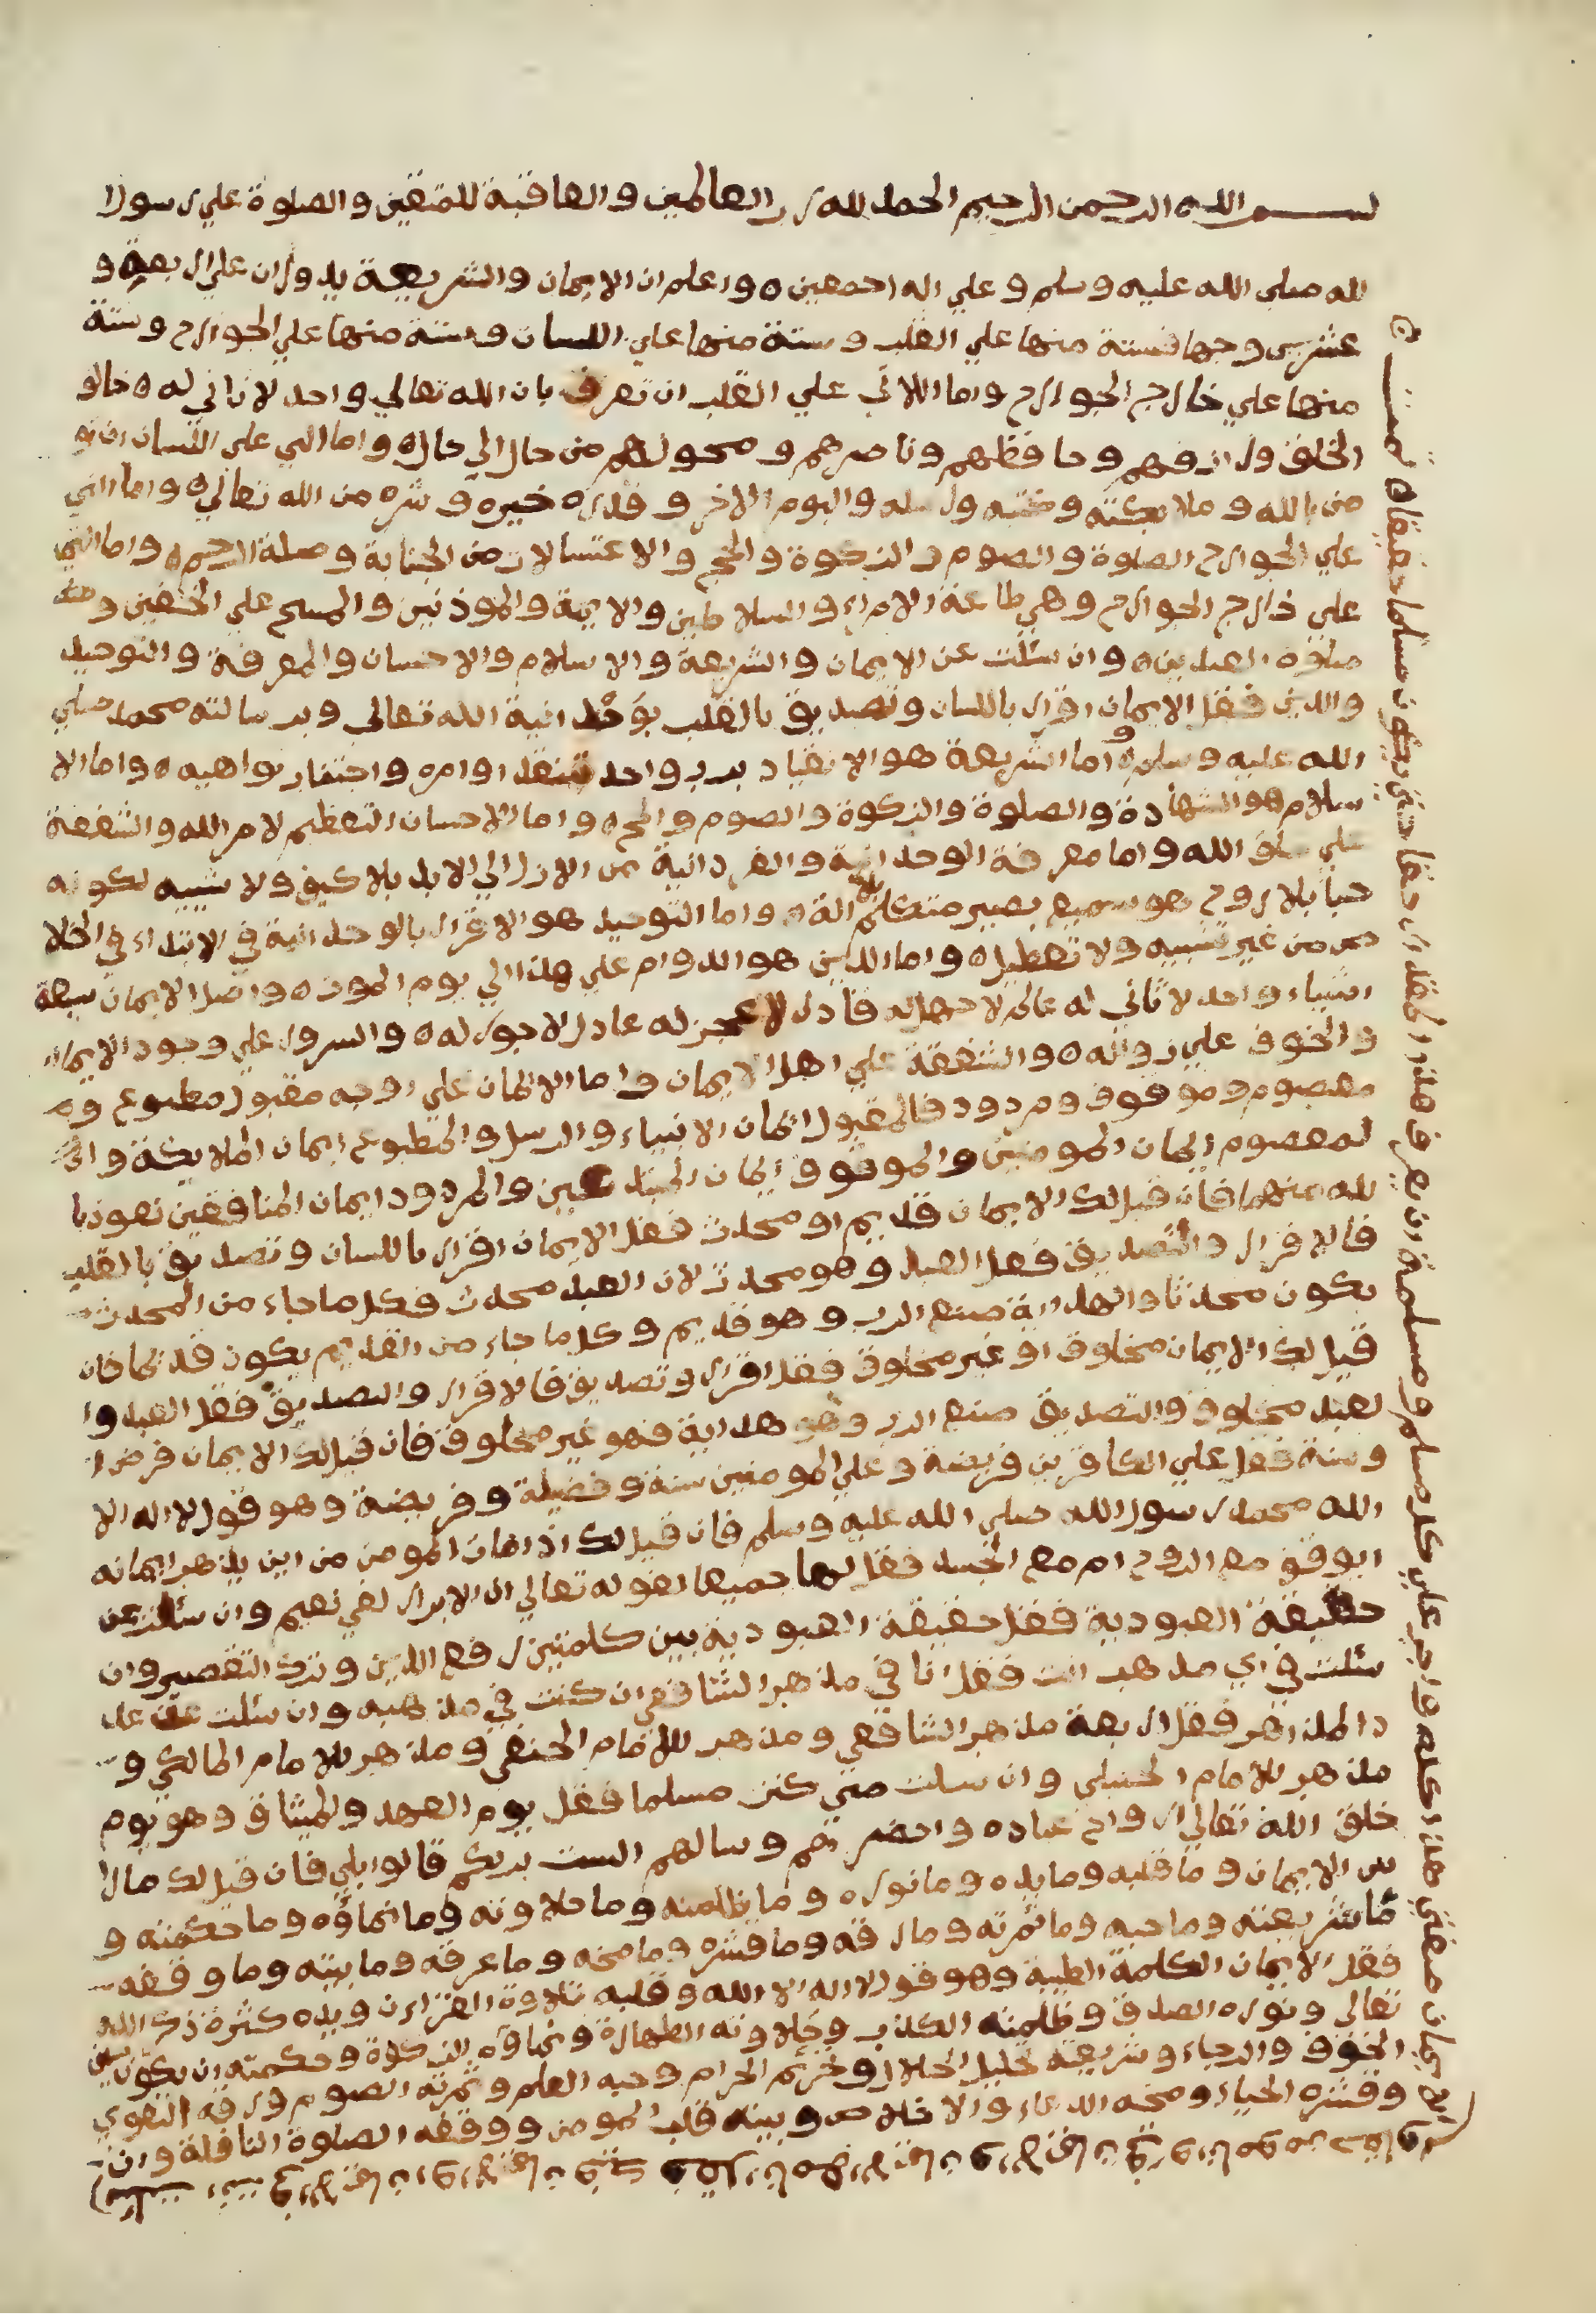 بسم الله الرحمن الرحيم الحمد لله رب العالمين والعاقبة للمتقين والصلوة علي رسول ا
لله صلي الله عليه وسلم وعلي اله اجمعين ه واعلم ان الايمان والشريعة يدوران علي اربعة و
عشرين وجها فستة منها علي القلب وستة منها علي اللسان وستة منها علي الجوارح وستة
منها علي خارج الجوارح واما اللاتي علي القلب ان تعرف بان الله تعالي واحد لا ثاني له ه خالق
الخلق ورازقهم وحافظهم وناصرهم ومحولهم من حال الي حال ه واما التي علي اللسان ان تو
من بالله وملايكته وكتبه ورسله واليوم الاخر وقدره خيره وشره من الله تعالي ه واما التي
علي الجوارح الصلوة والصوم والزكوة والحج والاغتسالات من الجنابة وصلة الرحم ه واما التي
علي خارج الجوارح وهي طاعة الامراء والسلاطين والايمة والموذنين والمسح علي الخفين و
صلاة العيدين ه وان سئلت عن الايمان والشريعة والاسلام والاحسان والمعرفة والتوحيد
والدين فقل الايمان اقرار باللسان وتصديق بالقلب بوَحْدانية الله تعالي وبرسالته محمد صلي
الله عليه وسلم ه واما الشريعة هو الانقياد برب واحد اوامره واجتناب نواهيه ه واما الا
سلام هو الشهادة والصلوة والزكوة والصوم والحج ه واما الاحسان التعظيم لامر الله والشفقة
علي خلق الله واما معرفة الوحدانية والفردانية من الازل الي الابد بلا كيف ولا شبيه لكونه
حيا بلا روح هو سميع بصير متكلم بلا الة ه واما التوحيد هو الاقرار بالوحدانية في الابتداء في اخلا
ص من غير تشبيه ولا تعطيل ه واما الدين هو الدوام علي هذا الي يوم الموت ه واصل الايمان سبعة
اشياء واحد لا ثاني له عالم لا جهل له قادر لا عجز له عادل لا جور له ه والسرور علي وجود الايمان
والخوف علي زواله ه والشفقة علي اهل الايمان واما الايمان علي اوجه مقبول مطبوع و
معصوم وموقوف ومردود فالمقبول ايمان الانبياء والرسل والمطبوع ايمان الملايكة وا
لمعصوم ايمان المومنين والموقوف ايمان المبتدعين والمردود ايمان المنافقين نعوذ با
لله منهما فان قيل لك الايمان قديم او محدث فقل الايمان اقرار باللسان وتصديق بالقلب
فالاقرار والتصديق فعل العبد وهو محدث لان العبد محدث فكل ما جاء من المحدث
يكون محدثا والهداية صنع الرب وهو قديم وكل ما جاء من القديم يكون قديما فان
قيل لك الايمان مخلوق او غير مخلوق فقل اقرار وتصديق فالاقرار والتصديق فعل العبد وا
لعبد مخلوق والتصديق صنع الرب وهو هداية فهو غير مخلوق فان قيل لك الايمان فرض ا
وسنة فقل علي الكافرين فريضة وعلي المومنين سنة وفضيلة وفريضة وهو قول لا اله الا
الله محمد رسول الله صلي الله عليه وسلم فان قيل لك اذا مات المومن من اين يذهب ايمانه
ابوقف مع الروح ام مع الجسد فقل لهما جميعا لقوله تعالي ان الابرار لفي نعيم وان سئلت عن
حقيقة العبودية فقل حقيقة العبودية بين كلمتين رفع الدين وترك التقصير وان
سئلت في اي مذهب انت فقل انا في مذهب الشافعي ان كنت في مذهبه وان سئلت عن عد
د المذاهب فقل اربعة مذهب الشافعي ومذهب للامام الحنفي ومذهب للامام المالكي و
مذهب للامام الحنبلي وان سئلت متي كنت مسلما فقل يوم العهد والميثاق وهو يوم
خلق الله تعالي ارواح عباده واحضرتهم وسالهم الست بربكم قالوا بلي فان قيل لك ما را
س الايمان وما قلبه وما يده وما نوره وما ظلمته وما حلاوته وما نماؤه وما حكمته و
ما شريعته وما حبه وما ثمرته وما رقه وما قشره وما مخه وما عرقه وما بيته وما وقفه
فقل الايمان الكلمة الطيبة وهو قول لا اله الا الله وقلبه تلاوة القراءن ويده كثرة ذكر الله
تعالي ونوره الصدق وظلمته الكذب وحلاوته الطهارة ونماوه الزكوة وحكمته ان يكون بين
الخوف والرجاء وشريعته تحليل الحلال وتحريم الحرام وحبه العلم وثمرته الصوم ورقه التقوي
وقشره الحياء ومخه الدعاء والاخلاص وبيته قلب المومن ووقفه الصلوة النافلة وان
الايمان صفتي هذا كله واجب علي كل مسلم ومسلمة ان يعرف هذا المقدار حقا حتي يكون مسلما حقيقا ه تمت